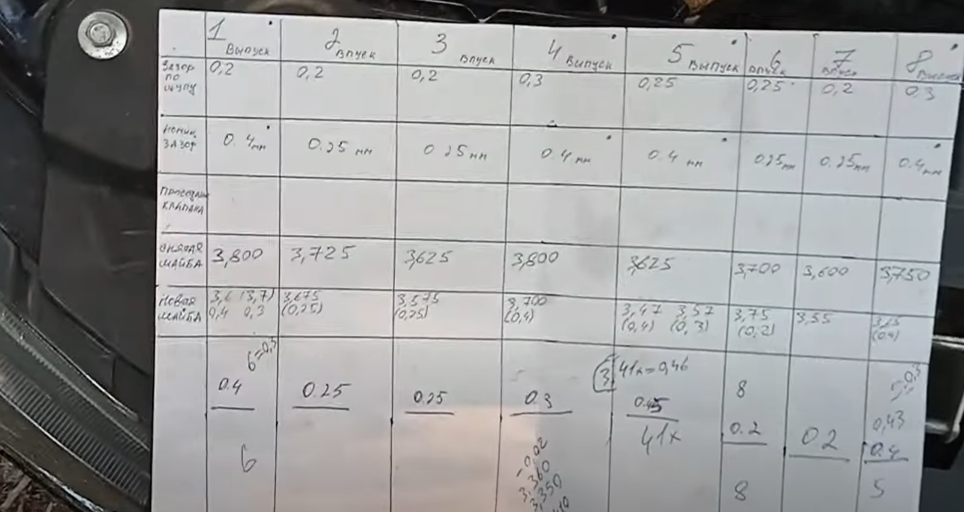 1 выпуск 2 впуск 3 впуск 4 выпуск 5 выпуск 6 впуск 7 впуск 8 выпуск
Зазор по щупу 0,2 0,2 0,2 0,3 0,25 0,25 0,2 0.3
зазор 0.4мм 0.25 мм 0.25мм 0.4мм 0.4 мм 0.25мм 0.25мм 0.4мм
шайба 3,800 3,725 3,625 3,800 3,625 3,700 3,600 3,750
Новая шайба 3,6 (3,7) 3,675 3,575 3,700 3,47 3,57 3,75 3,55
0,4 0,3 (0,25) (0,25) (0,4) (0,4) (0,3) (0,2) (0,4)
6=0,3
41х=0,46
0.4 0.25 0.25 0.3 8
0.2 0.2 0,43
0.4
6 41х 8 5
-0.02
3,360
3,350